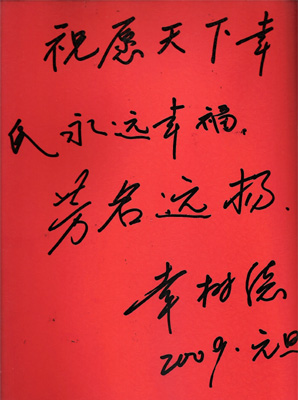 祝愿天下幸
氏永远幸福,
芳名远扬.
幸树德
2009.元旦